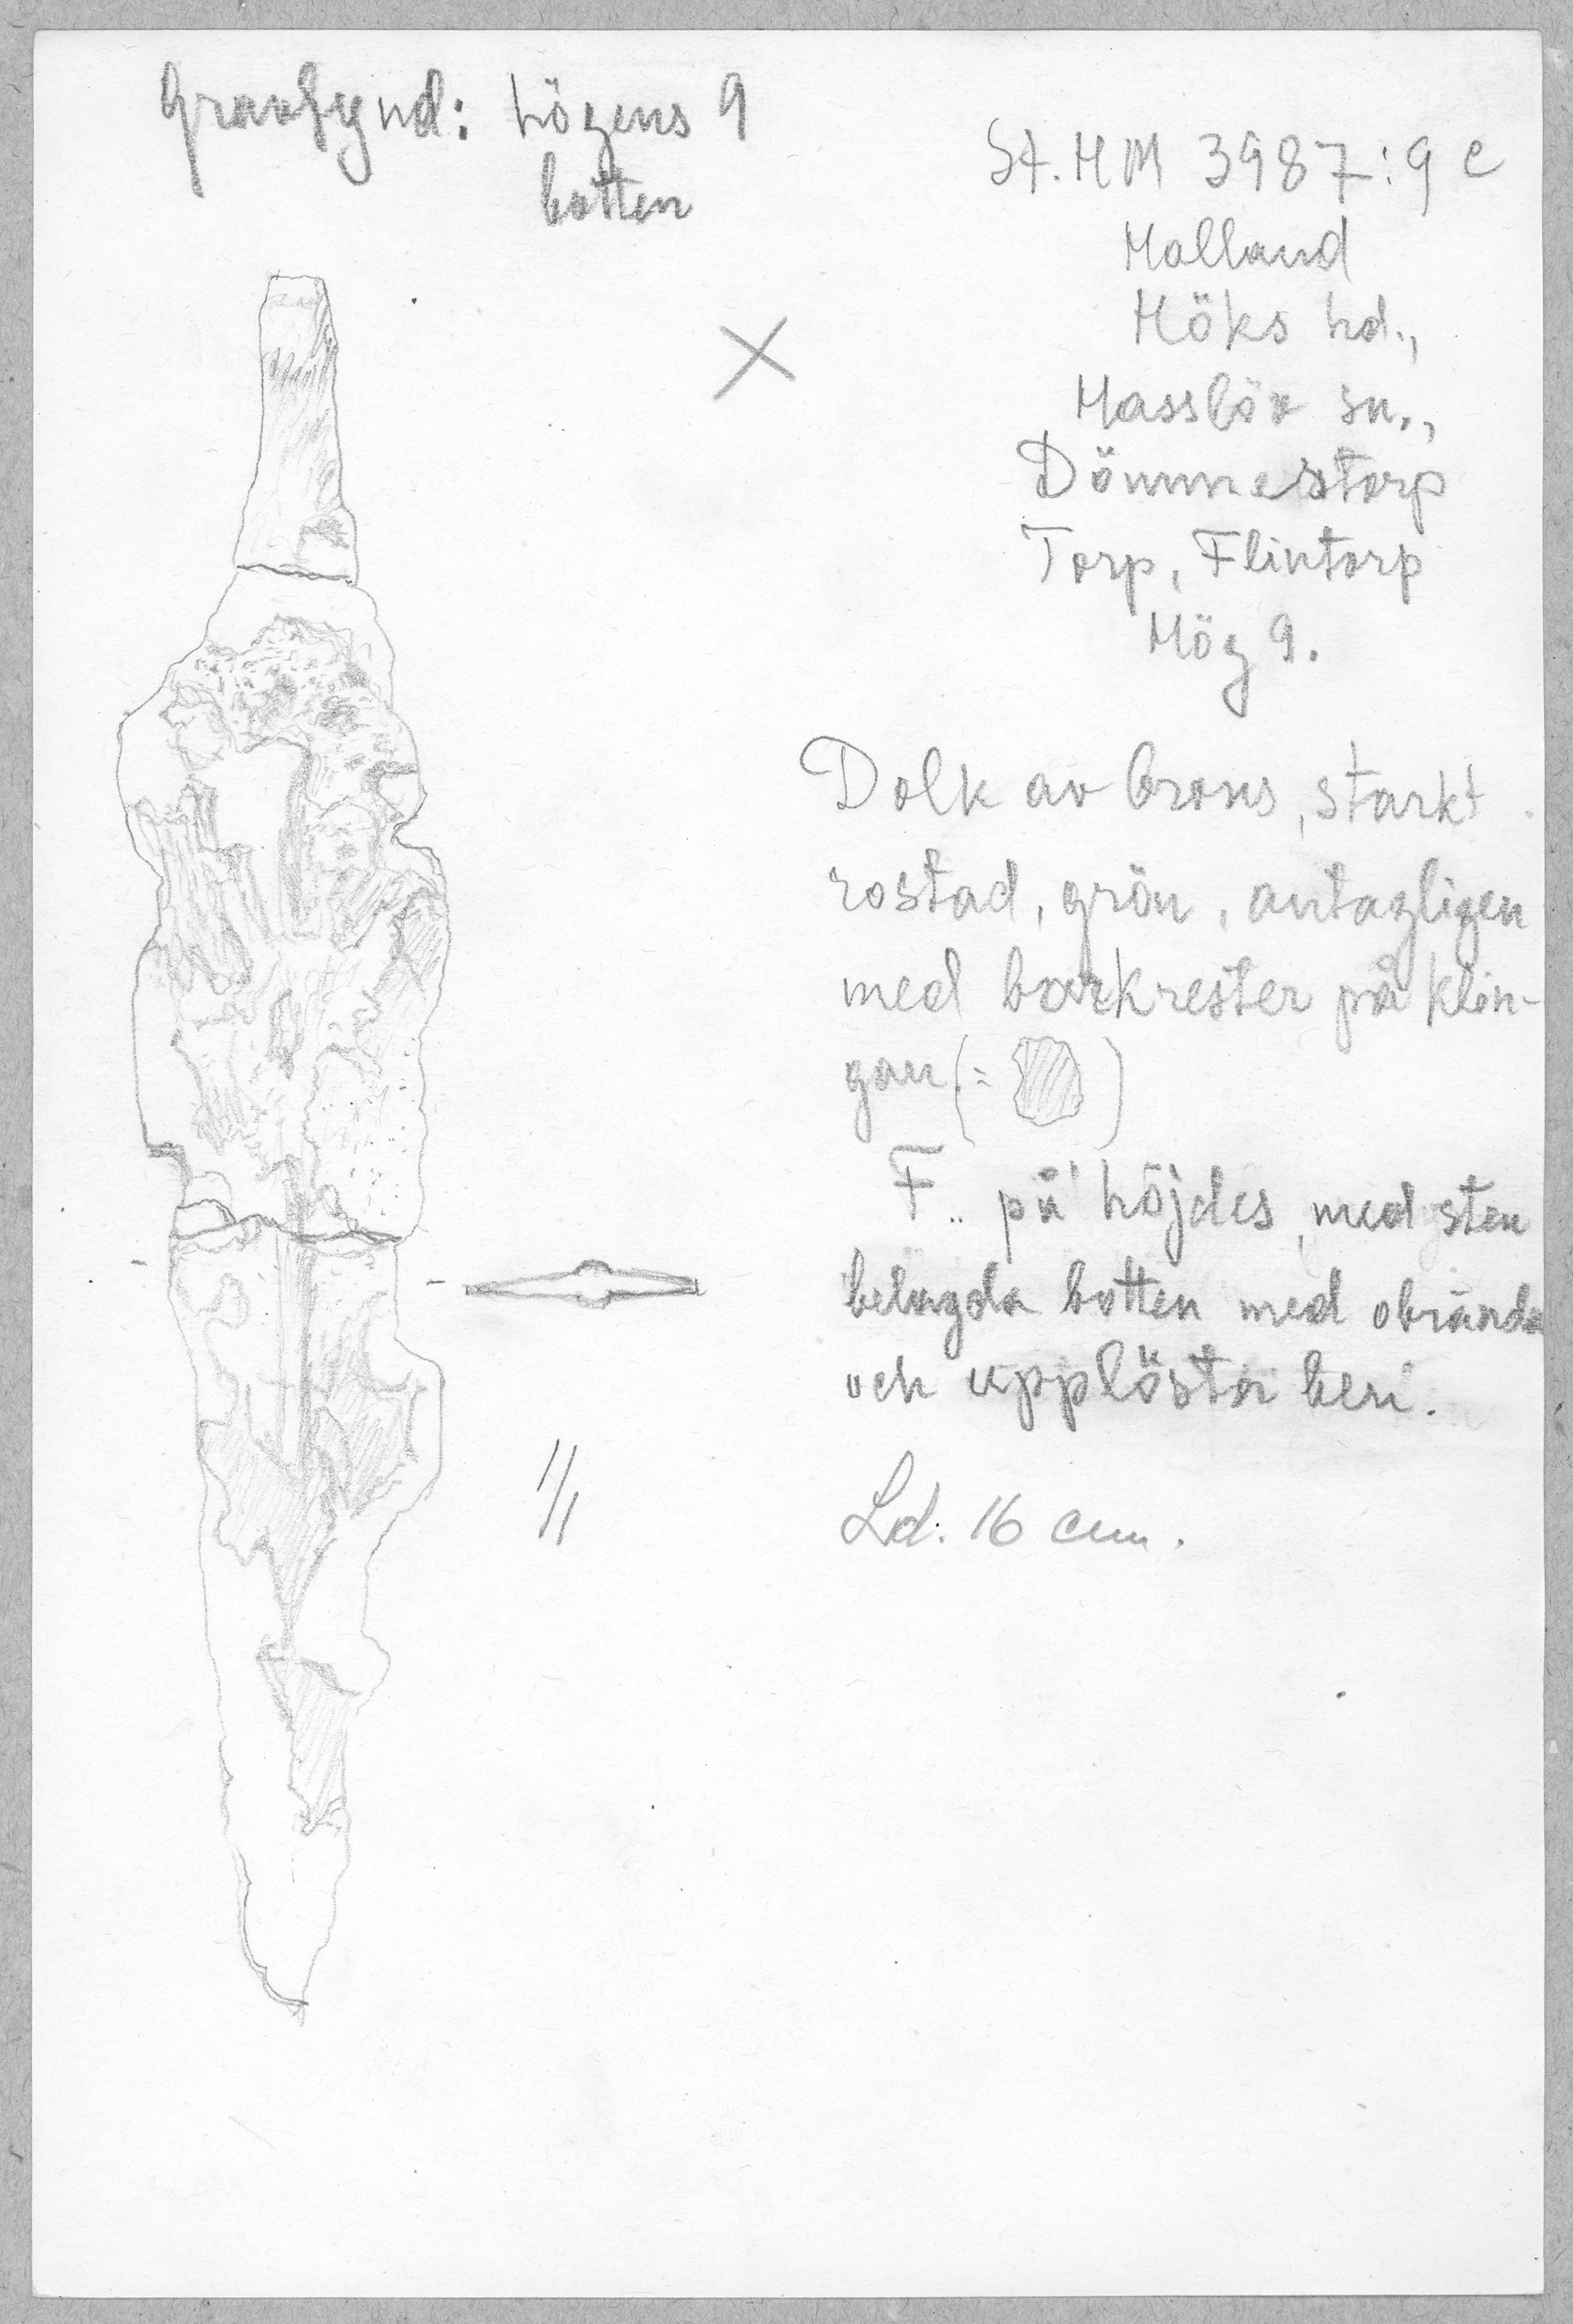 Gravfynd: högens 9
botten
St. HM 3987:9 c
Halland
Höks hd.,
Hasslöv sn.,
Dömmestorp
Torp, Flintorp
Hög 9.
Dolk av brons, starkt
rostad, grön, antagligen
med barkrester på klin-
gan (=
)
F. på höjdes, med sten
belagda botten med obrända
och upplösta ben.
1/1
Ld. 16 cm.